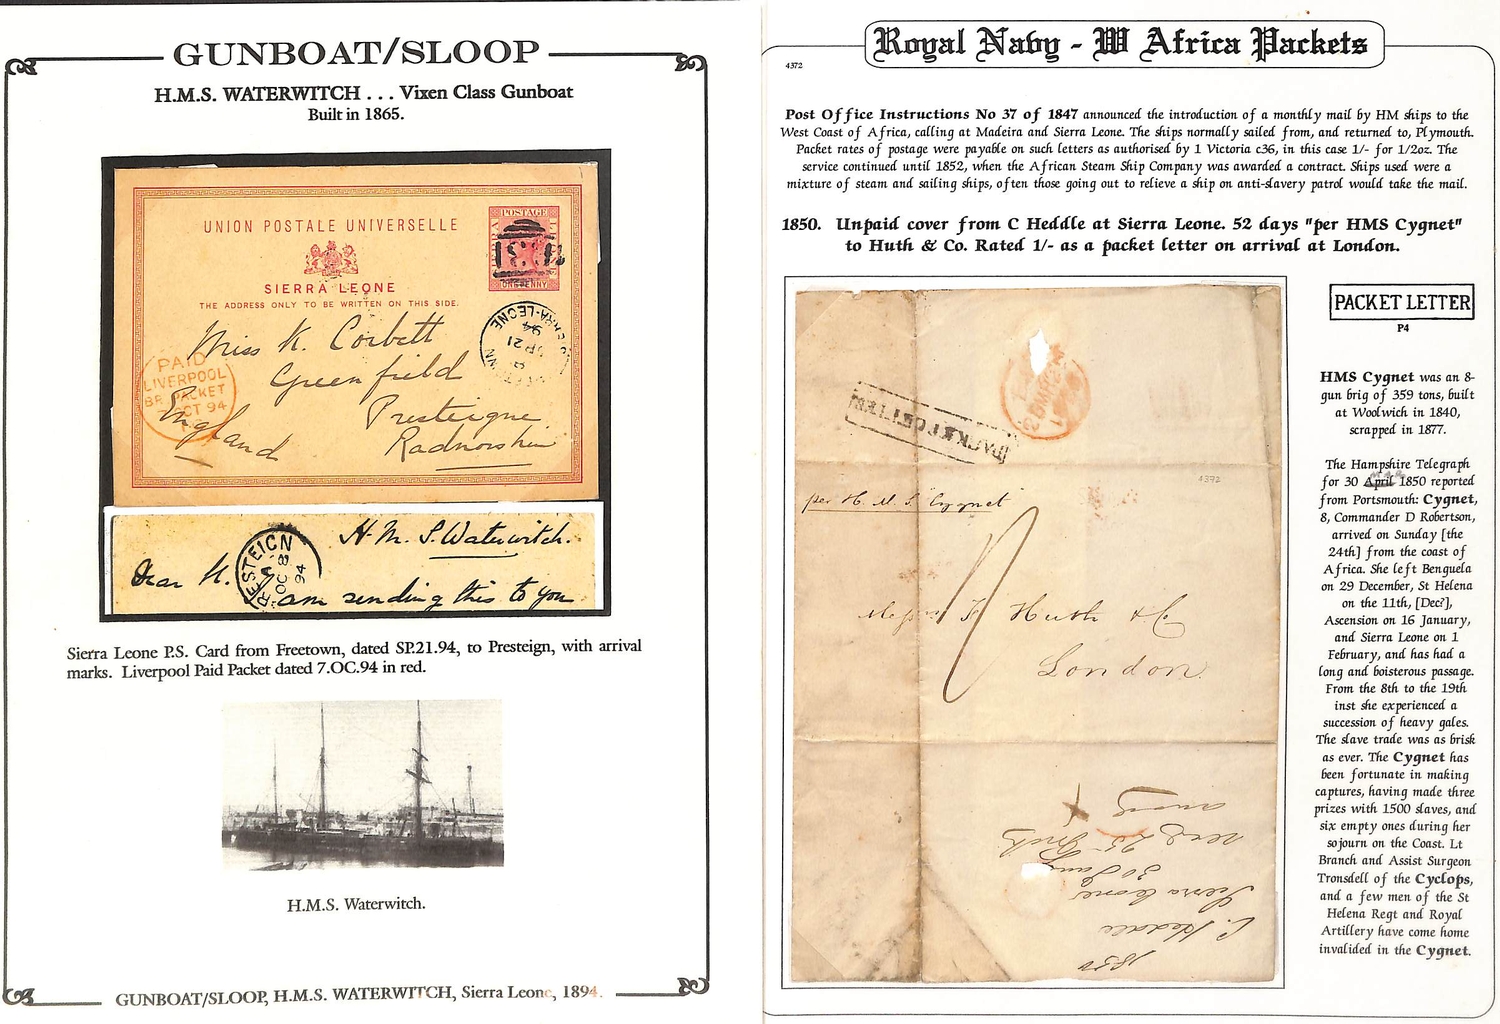 GUNBOAT/SLOOP
H.M.S. WATERWITCH . . . Vixen Class Gunboat
Built in 1865.
UNION POSTALE UNIVERSELLE
POSTAGE
ONE PENNY
SIERRA LEONE
THE ADDRESS ONLY TO BE WRITTEN ON THIS SIDE.
Miss K. Corbett
Greenfield
Presteigne
Radnorshire
England
PAID
LIVERPOOL
BR. PACKET
7 OCT 94
SIERRA-LEONE
94
SP 21
H.M.S. Waterwitch.
Dear K.
I am sending this to you
PRESTEIGN
A
OC 8
94
Sierra Leone P.S. Card from Freetown, dated SP.21.94, to Presteign, with arrival
marks. Liverpool Paid Packet dated 7.OC.94 in red.
H.M.S. Waterwitch.
GUNBOAT/SLOOP, H.M.S. WATERWITCH, Sierra Leone, 1894.
Royal Navy - W Africa Packets
4372
Post Office Instructions No 37 of 1847 announced the introduction of a monthly mail by HM ships to the
West Coast of Africa, calling at Madeira and Sierra Leone. The ships normally sailed from, and returned to, Plymouth.
Packet rates of postage were payable on such letters as authorised by 1 Victoria c36, in this case 1/- for 1/2oz. The
service continued until 1852, when the African Steam Ship Company was awarded a contract. Ships used were a
mixture of steam and sailing ships, often those going out to relieve a ship on anti-slavery patrol would take the mail.
1850. Unpaid cover from C Heddle at Sierra Leone. 52 days "per HMS Cygnet"
to Huth & Co. Rated 1/- as a packet letter on arrival at London.
PACKET LETTER
4372
per H. M. S. Cygnet
1
Messrs F. Huth & Co
London
1850
C. Heddle
Sierra Leone
30 Jany
PACKET LETTER
P4
HMS Cygnet was an 8-
gun brig of 359 tons, built
at Woolwich in 1840,
scrapped in 1877.
The Hampshire Telegraph
for 30 April Mar 1850 reported
from Portsmouth: Cygnet,
8, Commander D Robertson,
arrived on Sunday [the
24th] from the coast of
Africa. She left Benguela
on 29 December, St Helena
on the 11th, [Dec?],
Ascension on 16 January,
and Sierra Leone on 1
February, and has had a
long and boisterous passage.
From the 8th to the 19th
inst she experienced a
succession of heavy gales.
The slave trade was as brisk
as ever. The Cygnet has
been fortunate in making
captures, having made three
prizes with 1500 slaves, and
six empty ones during her
sojourn on the Coast. Lt
Branch and Assist Surgeon
Tronsdell of the Cyclops,
and a few men of the St
Helena Regt and Royal
Artillery have come home
invalided in the Cygnet.